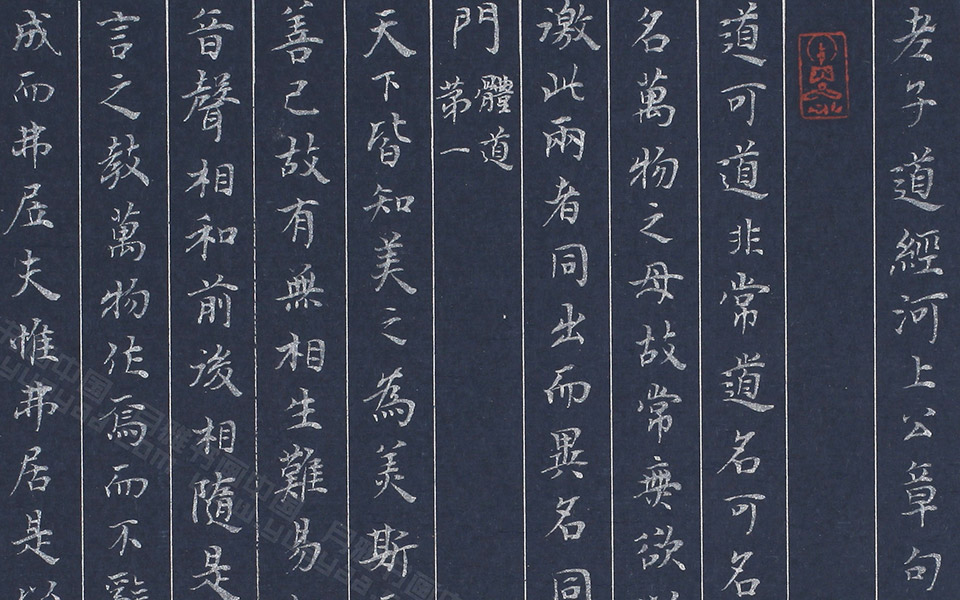 老子道經河上公章句
道可道非常道名可名
名萬物之母故常無欲
邀此兩者同出而異名同
門
體道
第一
天下皆知美之為美斯
善已故有無相生難易
音聲相和前後相隨是
言之教萬物作焉而不辭
成而弗居夫惟弗居是以